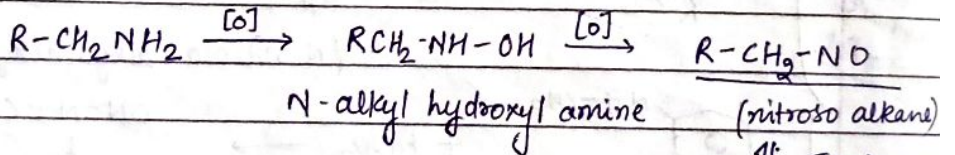 R-CH₂NH₂ [O]→ RCH₂-NH-OH [O]→ R-CH₂-NO
N-alkyl hydroxyl amine (nitroso alkane)